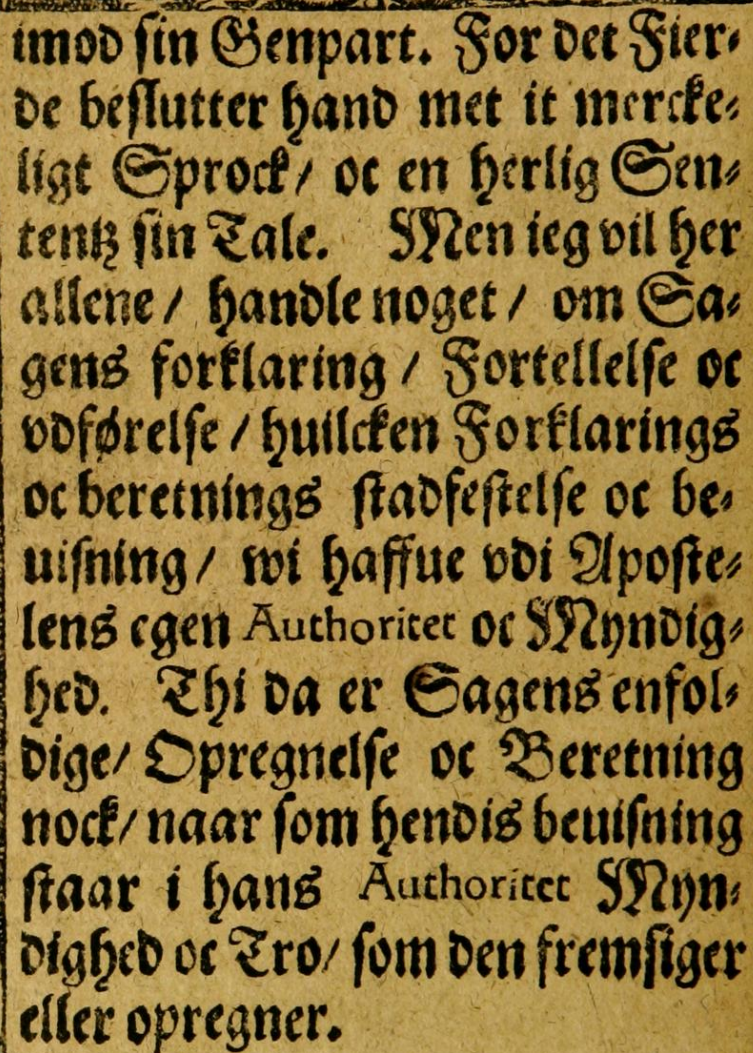 imod sin Genpart. For det Fier-
de beslutter hand met it mercke-
ligt Sprock/ oc en herlig Sen-
tentz sin Tale. Men ieg vil her
allene / handle noget / om Sa-
gens forklaring / Fortellelse oc
vdførelse / huilcken Forklarings
oc beretnings stadfestelse oc be-
uisning/ wi haffue vdi Aposte-
lens egen Authoritet oc Myndig-
hed. Thi da er Sagens enfol-
dige/ Opregnelse oc Beretning
nock/ naar som hendis beuisning
staar i hans Authoritet Myn-
dighed oc Tro/ som den fremsiger
eller opregner.